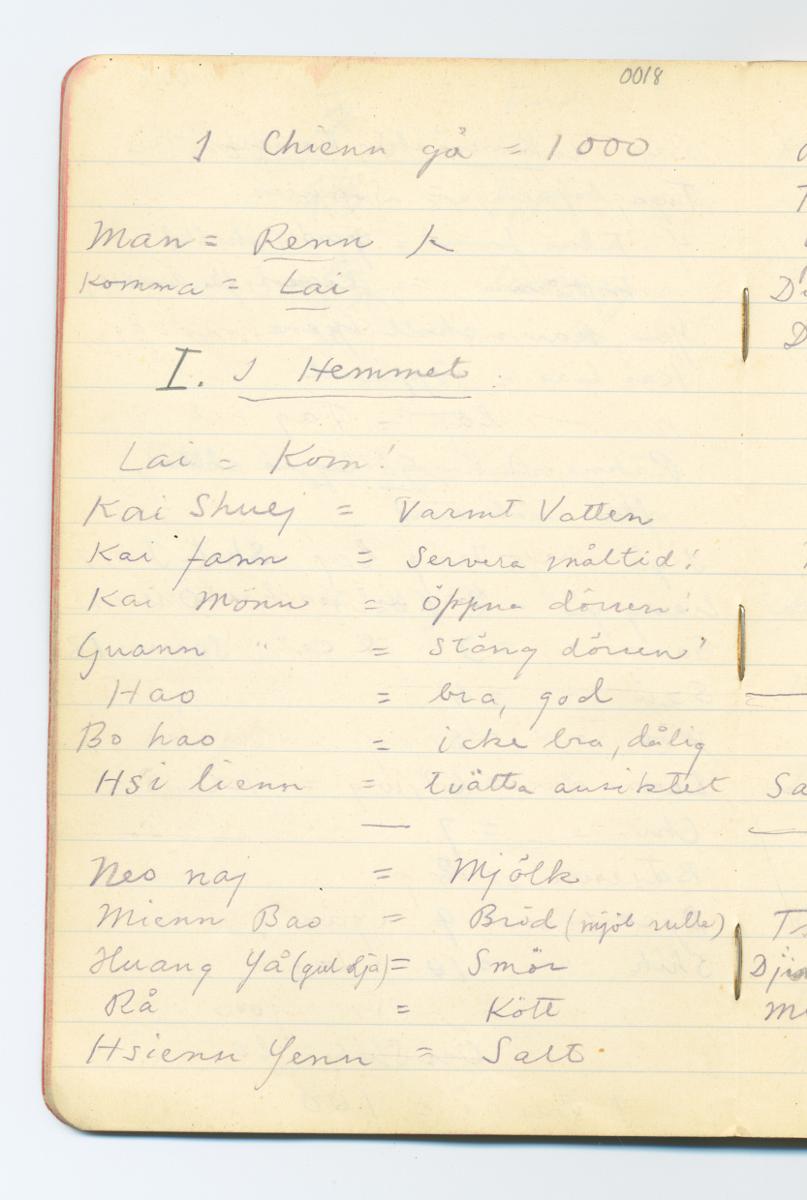 0018
1 Chienn gå = 1000
Man = Renn 人
Komma = Lai
I. I Hemmet.
Lai = Kom!
Kai Shuej = Varmt Vatten
Kai fann = Servera måltid!
Kai Mönn = Öppna dörren!
Guann " = Stäng dörren!
Hao = bra, god
Bo hao = icke bra, dålig
Hsi lienn = tvätta ansiktet
—
Neo naj = Mjölk
Mienn Bao = Bröd (mjöl rulle)
Huang Yå (gul olja) = Smör
Rå = Kött
Hsienn Yenn = Salt
D
D
Sa
T
Dji
M